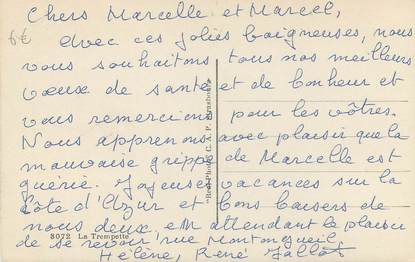 Chers Marcelle et Marcel,
6€
avec ces jolies baigneuses, nous
vous souhaitons tous nos meilleurs
vœux de santé et de bonheur et
vous remercions pour les vôtres.
Nous apprenons avec plaisir que la
mauvaise grippe de Marcelle est
guérie. Joyeuses vacances sur la
Côte d'Azur et bons baisers de
nous deux en attendant le plaisir
de se revoir rue Montorgueil.
Hélène, René
8072 La Trempette
Real-Photo C. A. P. Strasbourg